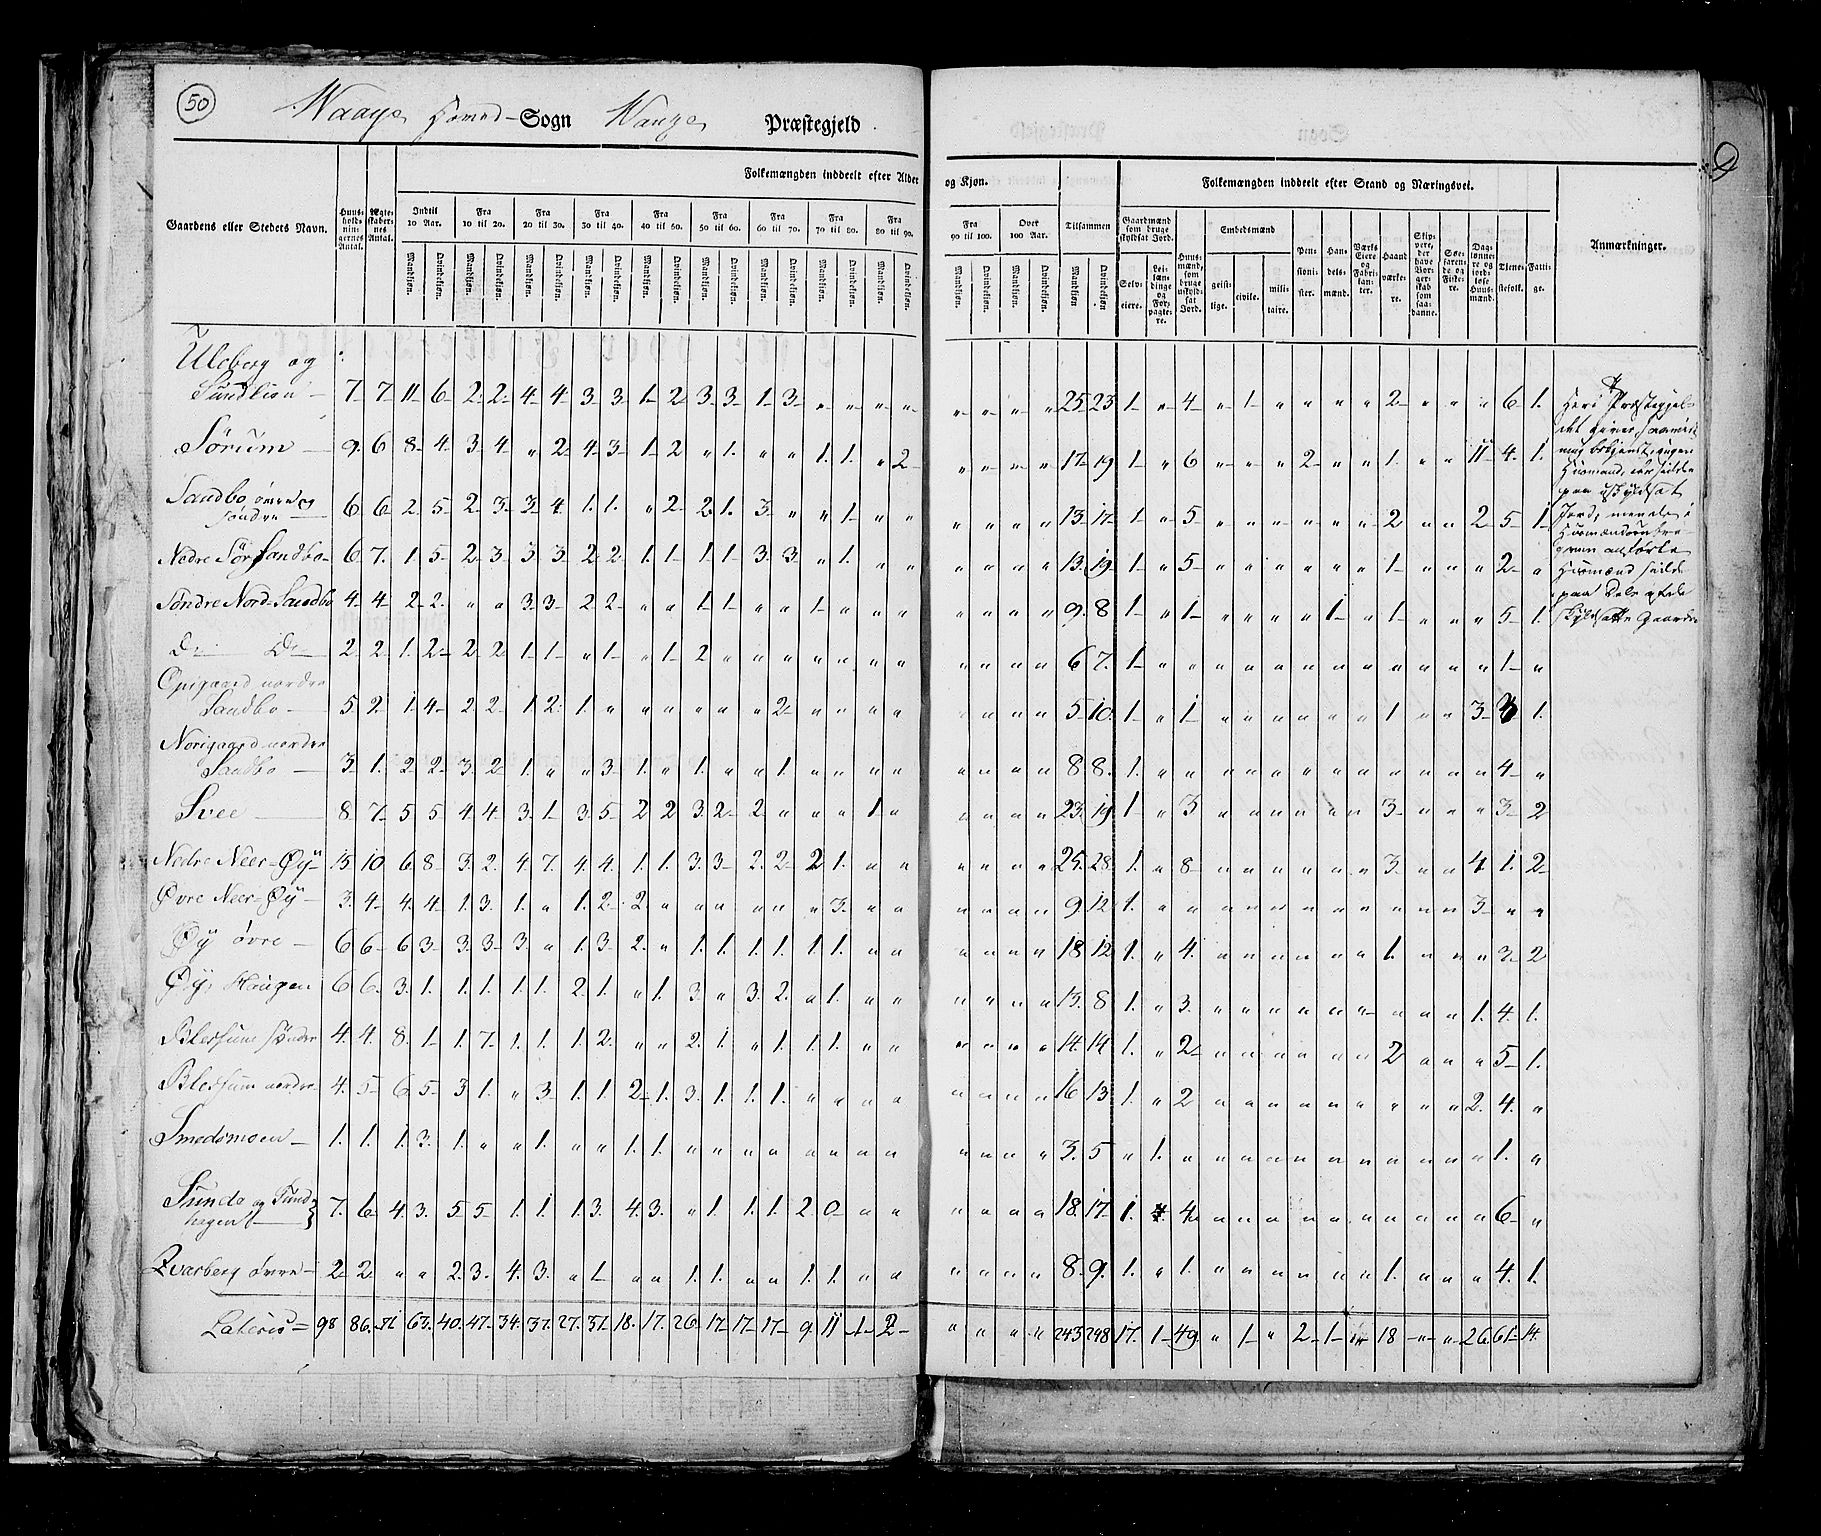 50
Waage Hoved- Sogn Waage Præstegjeld
9
Gaardens eller Stedets Navn. Huusholdningernes Antal. Ægteskabernes Antal. Folkemængden inddeelt efter Alder og Kjøn. Folkemængden inddeelt efter Stand og Næringsvei. Anmærkninger.
Indtil 10 Aar. Fra 10 til 20. Fra 20 til 30. Fra 30 til 40. Fra 40 til 50. Fra 50 til 60. Fra 60 til 70. Fra 70 til 80. Fra 80 til 90. Fra 90 til 100. Over 100 Aar. Tilsammen
Mandkjøn. Qvindekjøn.
Gaardmænd som bruge skyldsat Jord. Selveiere. Leilændinge og Forpagtere. Huusmænd, som bruge uskyldsat Jord. Embedsmænd geistlige. civile. militaire. Pensionister. Handelsmænd. Værks Eiere og Fabrikanter. Haandværkere. Skippere, der have Borgerskab som saadanne. Søefarende og Fiskere. Daglønnere og jordløse Huusmænd. Tjenestefolk. Fattige.
Uleberg og
Sundlien 7 7 11 6 2 2 4 4 3 3 1 2 3 3 1 3 " " " " " " " " 25 23 1 " 4 " 1 " " " " 2 " " " 6 1
Sørum 9 6 8 4 3 4 " 2 4 3 1 2 " 1 " " 1 1 " 2 " " " " 17 19 1 " 6 " " " 2 " " 1 " " 11 4 1
Sandbo øvre og
søndre 6 6 2 5 2 3 3 4 1 1 " 2 2 1 3 " " 1 " " " " " " 13 17 1 " 5 " " " " " " 2 " " 2 5 1
Nedre Sør Sandbo 6 7 1 5 2 3 3 3 2 2 1 1 1 1 3 3 " 1 " " " " " " 13 19 1 " 5 " " " " " " 1 " " " 2 "
Søndre Nord-Sandbo 4 4 2 2 " " 3 3 2 2 " " 1 1 " " 1 " " " " " " " 9 8 1 " 1 " " " " 1 " 1 " " " 5 1
D D 2 2 1 2 2 2 1 1 " 1 " 1 2 " " " " " " " " " " " 6 7 1 " " " " " " " " " " " " 1 "
Opigaard nordre
Sandbo 5 2 1 4 2 2 1 2 1 " " " " " " 2 " " " " " " " " 5 10 1 " 1 " " " " " " 1 " " 3 3 1
Norigaard nordre
Sandbo 3 1 2 2 3 2 1 " " 3 1 " 1 " " 1 " " " " " " " " 8 8 1 " " " " " " " " " " " " 4 "
Svee 8 7 5 5 4 4 3 1 3 5 2 2 3 2 2 " " " 1 " " " " " 23 19 1 " 3 " " " " " " 3 " " " 3 2
Nedre Neer-Øy 15 10 6 8 3 2 4 7 4 4 1 1 3 3 2 2 2 1 " " " " " " 25 28 1 " 8 " " " " " " 3 " " 4 1 2
Øvre Neer-Øy 3 4 4 4 1 3 1 " 1 2 2 " " " " " " 3 " " " " " " 9 12 1 " " " " " " " " " " " 3 " "
Øy øvre 6 6 6 3 3 3 3 " 1 3 2 " 1 1 1 1 1 1 " " " " " " 18 12 1 " 4 " " " " " " 1 " " " 3 2
Øy Haugen 6 6 3 1 1 1 1 1 2 1 " 1 3 " 3 2 " 1 " " " " " " 13 8 1 " 3 " " " " " " " " " 1 4 1
Blessum søndre 4 4 8 1 1 7 1 1 1 2 " " 2 1 " 1 1 1 " " " " " " 14 14 1 " 2 " " " " " " 2 " " " 5 1
Blessum nordre 4 5 6 5 3 1 " 3 1 1 2 1 3 1 1 1 " " " " " " " " 16 13 1 " 2 " " " " " " " " " 2 4 "
Smedsmoen 1 1 1 3 1 " " 1 " " 1 1 " " " " " " " " " " " " 3 5 " 1 " " " " " " " " " " " 1 "
Sunde og Sund-
hagen 7 6 4 3 5 5 1 1 1 3 4 3 " 1 1 1 2 0 " " " " " " 18 17 1 " 4 " " " " " " " " " " 6 "
Qvarberg øvre 2 2 " " 2 3 4 3 " 1 " " 1 1 " " 1 1 " " " " " " 8 9 1 " 1 " " " " " " 1 " " " 4 1
Lateris = 98 86 71 63 40 47 34 37 27 37 18 17 26 17 17 17 9 11 1 2 " " " " 243 248 17 1 49 " 1 " 2 1 " 18 " " 26 61 14
Her i Præstegjeldet
skyldsatte Gaarde